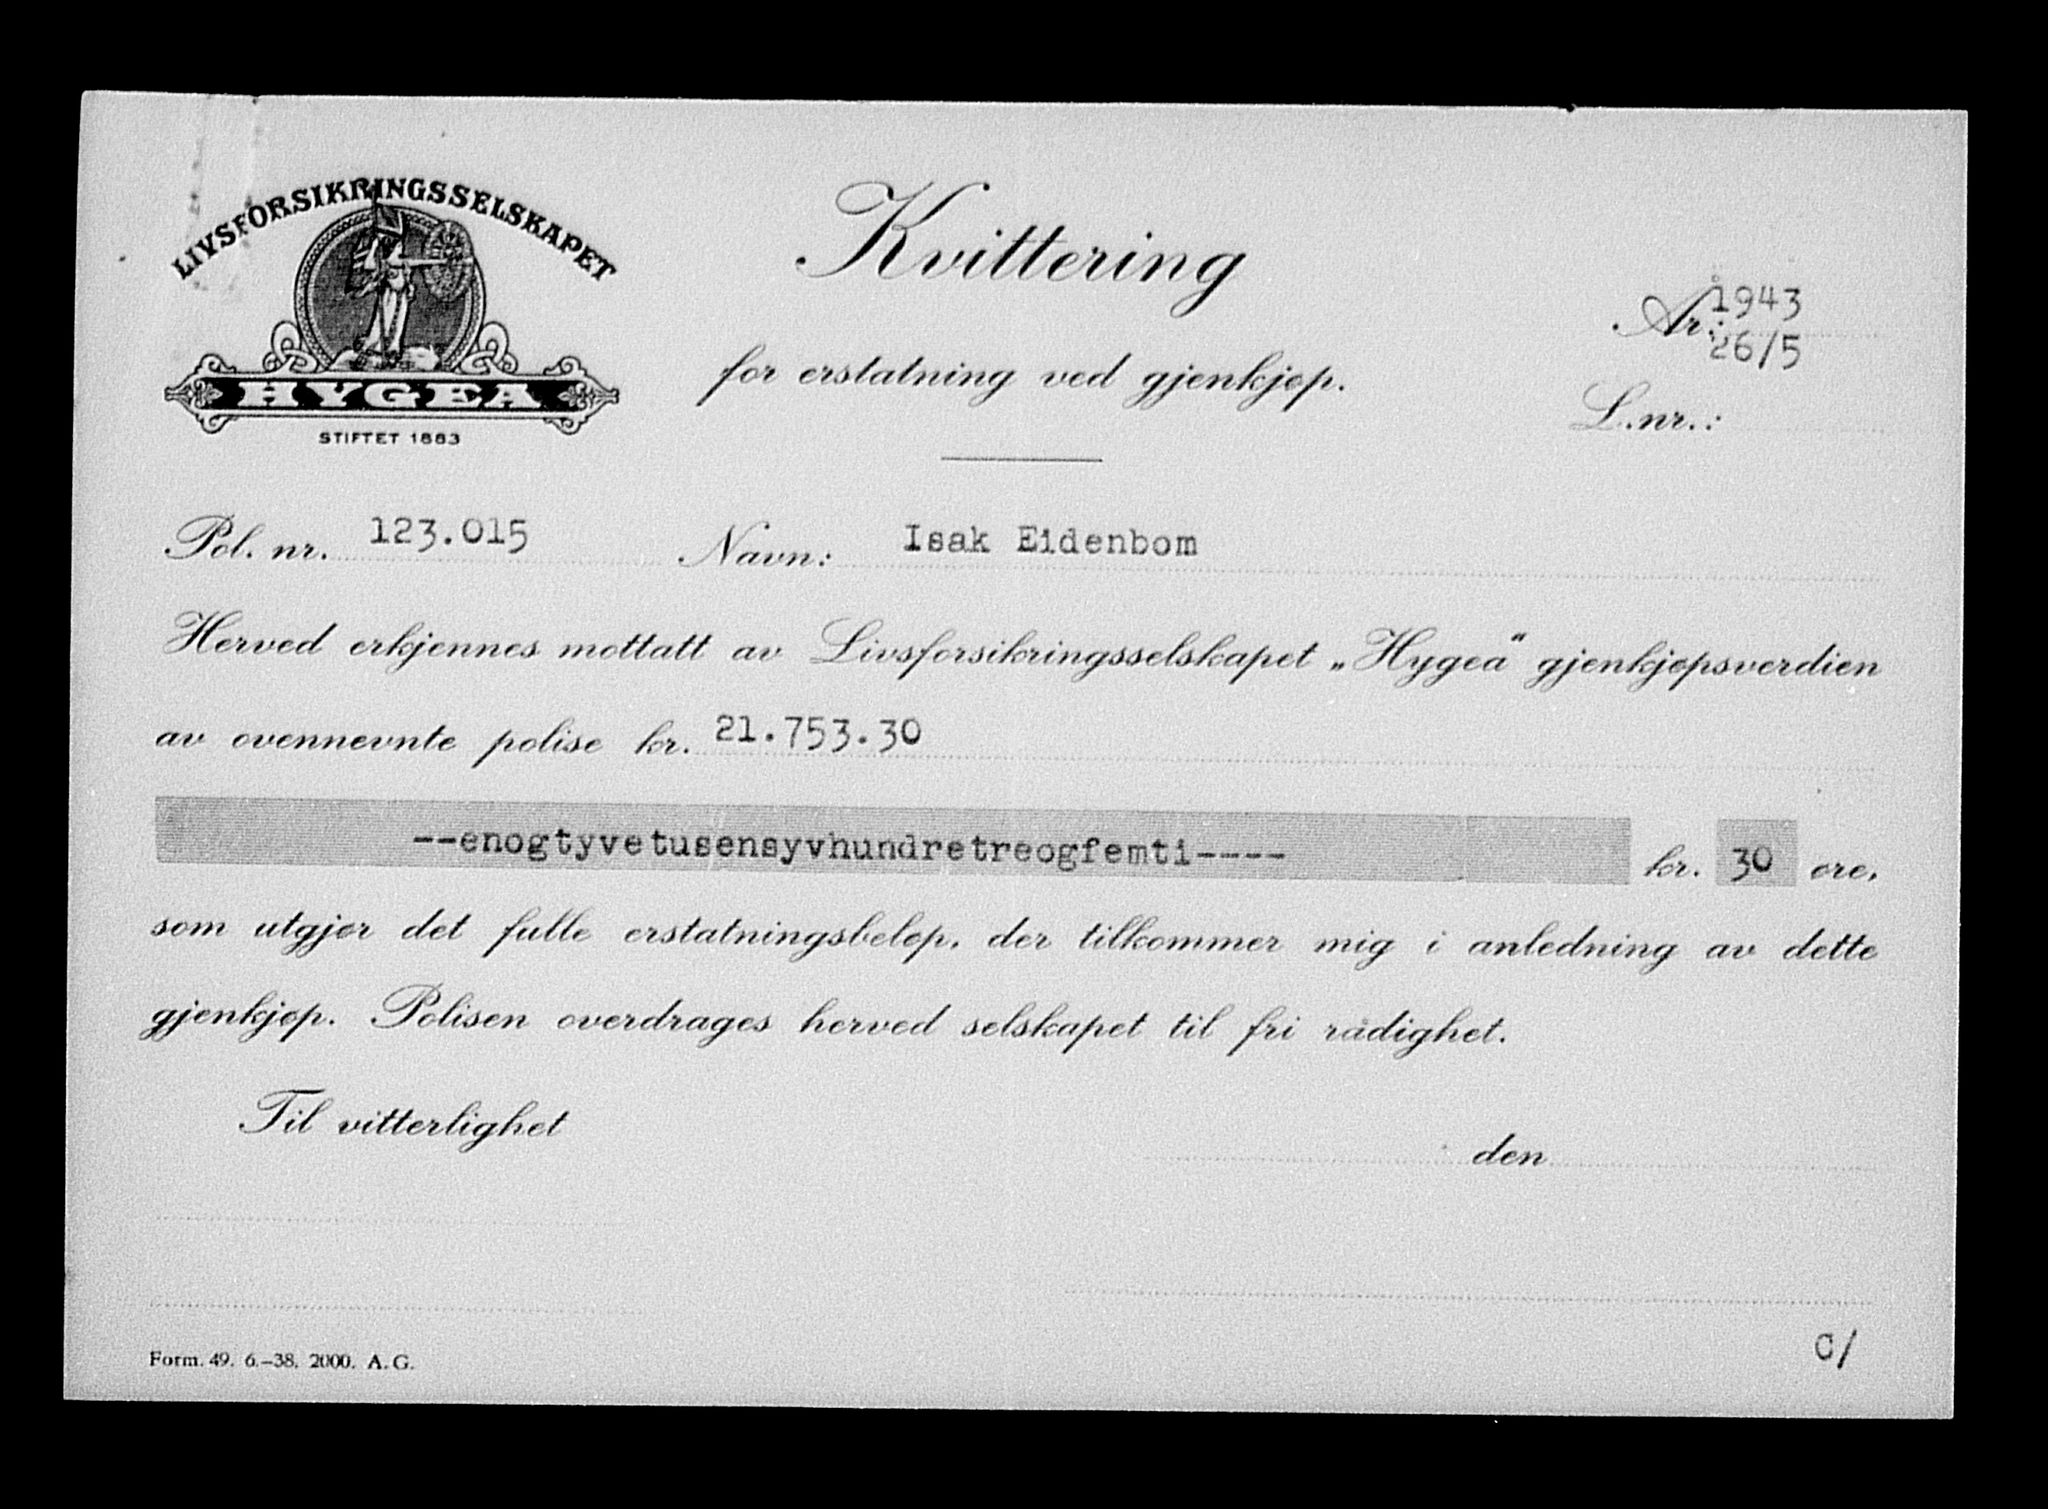 LIVSFORSIKRINGSSELSKAPET
HYGEA
STIFTET 1883
Kvittering
for erstatning ved gjenkjøp.
År: 1943
26/5
L.nr.:
Pol. nr. 123.015 Navn: Isak Eidenbom
Herved erkjennes mottatt av Livsforsikringsselskapet „Hygea“ gjenkjøpsverdien
av ovennevnte polise kr. 21.753.30
--enogtyvetusensyvhundretreogfemti---- kr. 30 øre,
som utgjør det fulle erstatningsbeløp, der tilkommer mig i anledning av dette
gjenkjøp. Polisen overdrages herved selskapet til fri rådighet.
Til vitterlighet
den
Form. 49. 6.-38. 2000. A.G.
C/